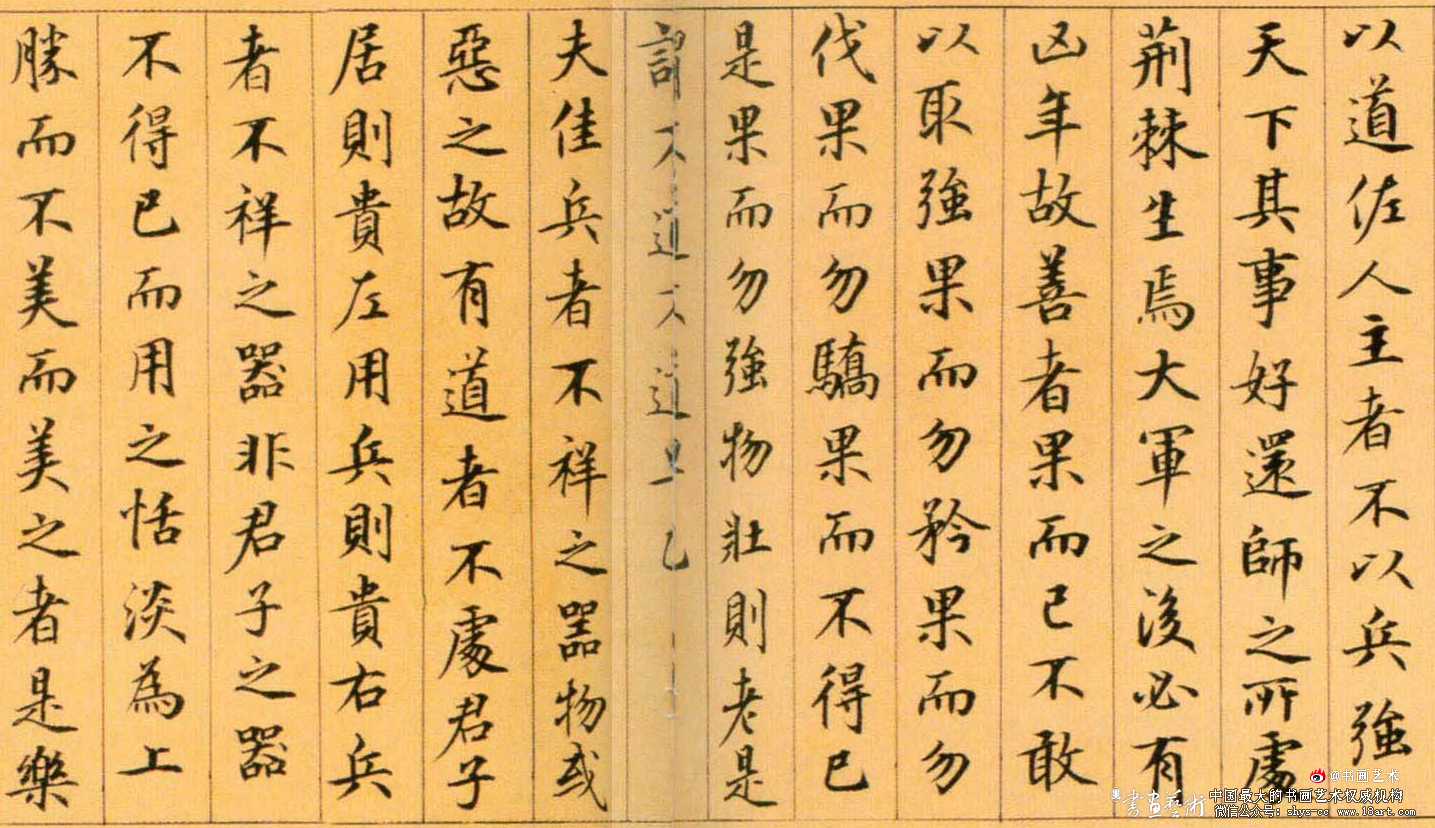 以道佐人主者不以兵強
天下其事好還師之所處
荊棘生焉大軍之後必有
凶年故善者果而已不敢
以取強果而勿矜果而勿
伐果而勿驕果而不得已
是果而勿強物壯則老是
謂不道不道早已
夫佳兵者不祥之器物或
惡之故有道者不處君子
居則貴左用兵則貴右兵
者不祥之器非君子之器
不得已而用之恬淡為上
勝而不美而美之者是樂
@书画艺术
書畫藝術
中国最大的书画艺术权威机构
微信公众号: shys-cc www.18art.com